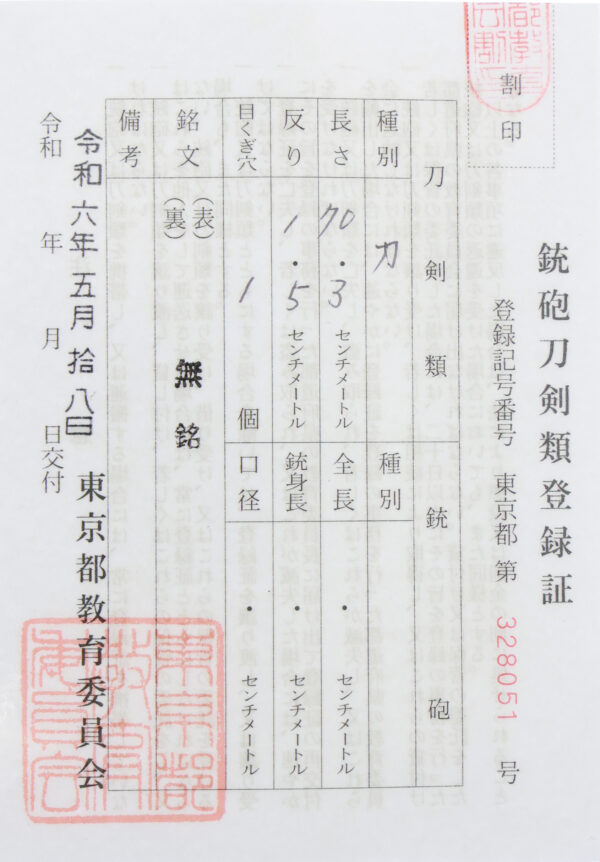 割印
銃砲刀剣類登録証
登録記号番号 東京都 第 328051 号
刀剣類
銃砲
種別 刀
種別
長さ 70・3 センチメートル
全長 ・ センチメートル
反り 1・5 センチメートル
銃身長 ・ センチメートル
目くぎ穴 1 個
口径 ・ センチメートル
銘文 (表) 無銘
(裏)
備考
令和六年五月拾八日
令和 年 月 日交付
東京都教育委員会
東京都教育委員会